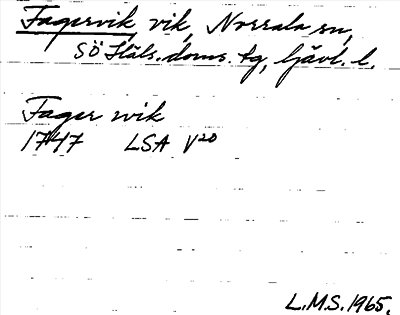 Fagervik, vik, Norrala sn,
SÖ Häls. doms. tg, Gävl. l.
Fager wik
1747 LSA V20
L.M.S. 1965.